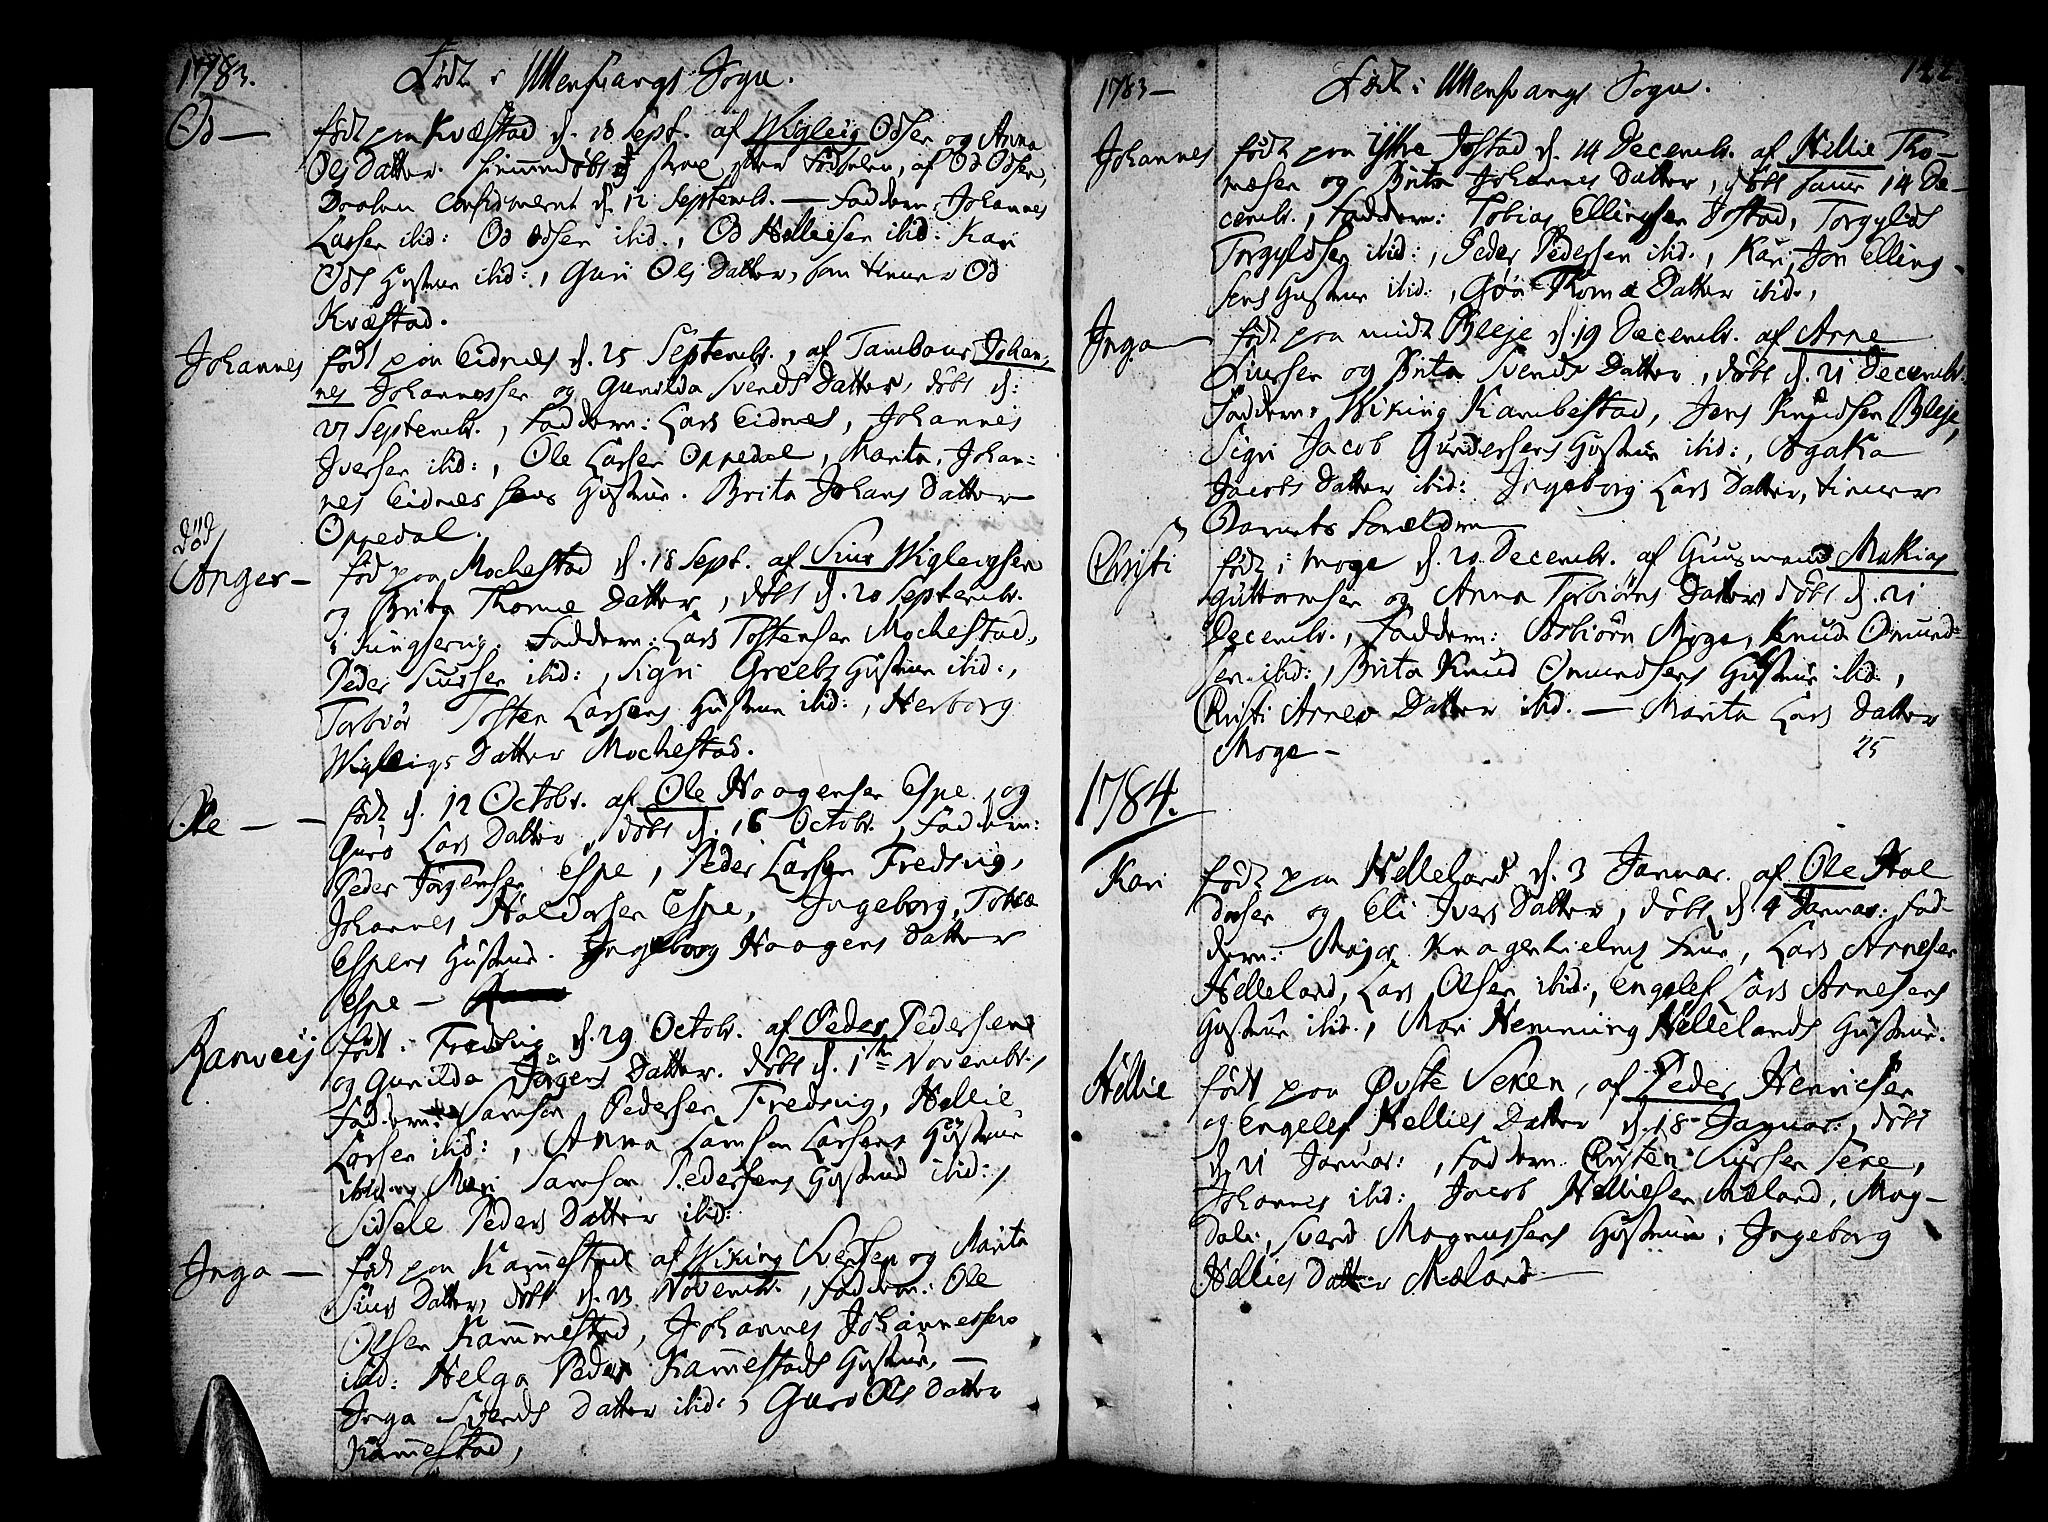 1783.
Födt i Ullensvangs Sogn.
Od —
födt paa Kvæstad d. 10 Sept. af Wigleig Odsen og Anna
Ols Datter. hiemmedöbt strax efter Födselen, af Od Odsen,
Daaben confirmeret d. 12 Septembr. — Faddern: Johannes
Larsen ibid: Od Odsen ibid., Od Helliesen ibid: Kari
Ods Hustrue ibid:, Guri Ols Datter, som tiener Od
Kvæstad.
Johannes
födt paa Eidnes d. 25 Septembr., af Tambour Johan-
nes Johannessen og Gunilda Svends Datter, döbt d:
27 Septembr., Faddern: Lars Eidnes, Johannes
Iversen ibid:, Ole Larsen Oppedal, Marita, Johan-
nes Eidnes Hustrue. Brita Johans Datter
Oppedal.
död
Anger —
född paa Mochestad d. 18 Sept. af Siur Wigleigsen
og Brita Thomæ Datter, döbt d. 20 Septembr.
i Kingservig. Faddern: Lars Tostensen Mochestad,
Peder Siursen ibid:, Sigri Greebs Hustrue ibid:,
Torbiör Tosten Larsens Hustrue ibid:, Herborg
Wigleigs Datter Mochestad.
Ole — —
födt d. 12 Octobr. af Ole Haagensen Espe, og
Guro Lars Datter, döbt d. 16 Octobr., Faddern:
Peder Jörgensen Espe, Peder Larsen Fredsvig,
Johannes Haldorsen Espe, Ingeborg, Tobiæ
Espens Hustrue. Ingeborg Haagens Datter
Espe —
Ranveij
födt i Fredsvig d. 29 Octobr. af Peder Pedersen
og Gunilda Jörgens Datter. döbt d. 1ste Novembr.,
Faddern: Samson Pedersen Fredsvig, Hellie
Larsen ibid:, Anna Samson Larsens Hustrue
ibid. Mari Samson Pedersens Hustrue ibid:,
Sidsele Peders Datter ibid:
Inga —
födt paa Kammestad af Wiking Svensen og Marita
Siurs Datter, döbt d. 23 Novembr., Faddern: Ole
Olsen Kammestad, Johannes Johannessen
ibid: Helga Peder Kammestads Hustrue, —
Inga Svends Datter ibid:, Guro Ols Datter
Kammestad,
1783 —
Födt i Ullensvangs Sogn.
122
Johannes
födt paa Ystte Jaastad d. 14 Decembr. af Hellie Tho-
mæsen og Brita Johannes Datter, döbt samme 14 De-
cembr., Faddern: Tobias Ellingsen Jaastad, Torgylds
Torgyldsen ibid:, Peder Pedersen ibid., Kari, Jon Elling-
sens Hustrue ibid:, Thomæ Datter ibid.,
Inga —
födt paa midt Bleje d. 19 Decembr. af Arne
Siursen og Brita Svends Datter, döbt d. 21 Decembr.
Faddern: Wiking Kambestad, Jens Knudsen Bleje,
Sigri Jacob Gundersens Hustrue ibid:, Agata
Jacobs Datter ibid: Ingeborg Lars Datter, tiener
Barnets Forældre
Christi
födt i Moge d. 20 Decembr. af Huusmand Matias
Guttormsen og Anna Torbiörns Datter döbt d. 21
Decembr., Faddern: Asbiörn Moge, Knud Omund-
sen ibid:, Brita Knud Omundsens Hustrue ibid,
Christi Arnes Datter ibid. — Marita Lars Datter
Moge —
25
1784.
Kari
födt paa Helleland d. 3 Januar. af Ole Hal
dorsen og Eli Ivers Datter, döbt d. 4 Januar: Fad-
dern: Major Knagenhielms Frue, Lars Arnesen
Helleland, Lars Olsen ibid:, Engelef Lars Arnesens
Hustrue ibid., Mari Hemming Hellelands Hustrue.
Hellie
födt paa Øvste Sexen, af Peder Henricsen
og Engelef Hellies Datter d. 18 Januar:, döbt
d. 21 Januar:, Faddern Christen Siursen Sexe,
Johannes ibid: Jacob Helliesen Mæland, Mag-
dali, Svend Magnussens Hustrue, Ingeborg
Hellies Datter Mæland —